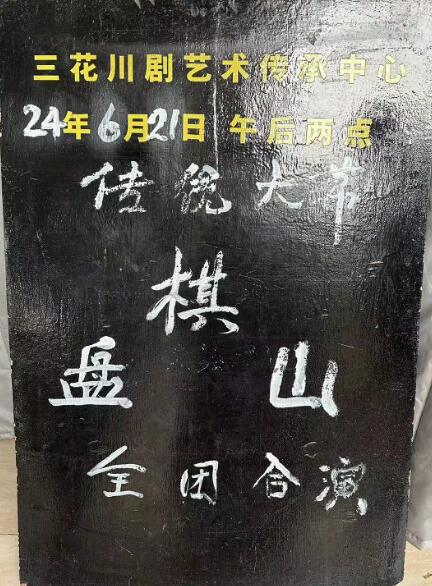 三花川剧艺术传承中心
24年6月21日 午后两点
传统大幕
棋
盘 山
全团合演